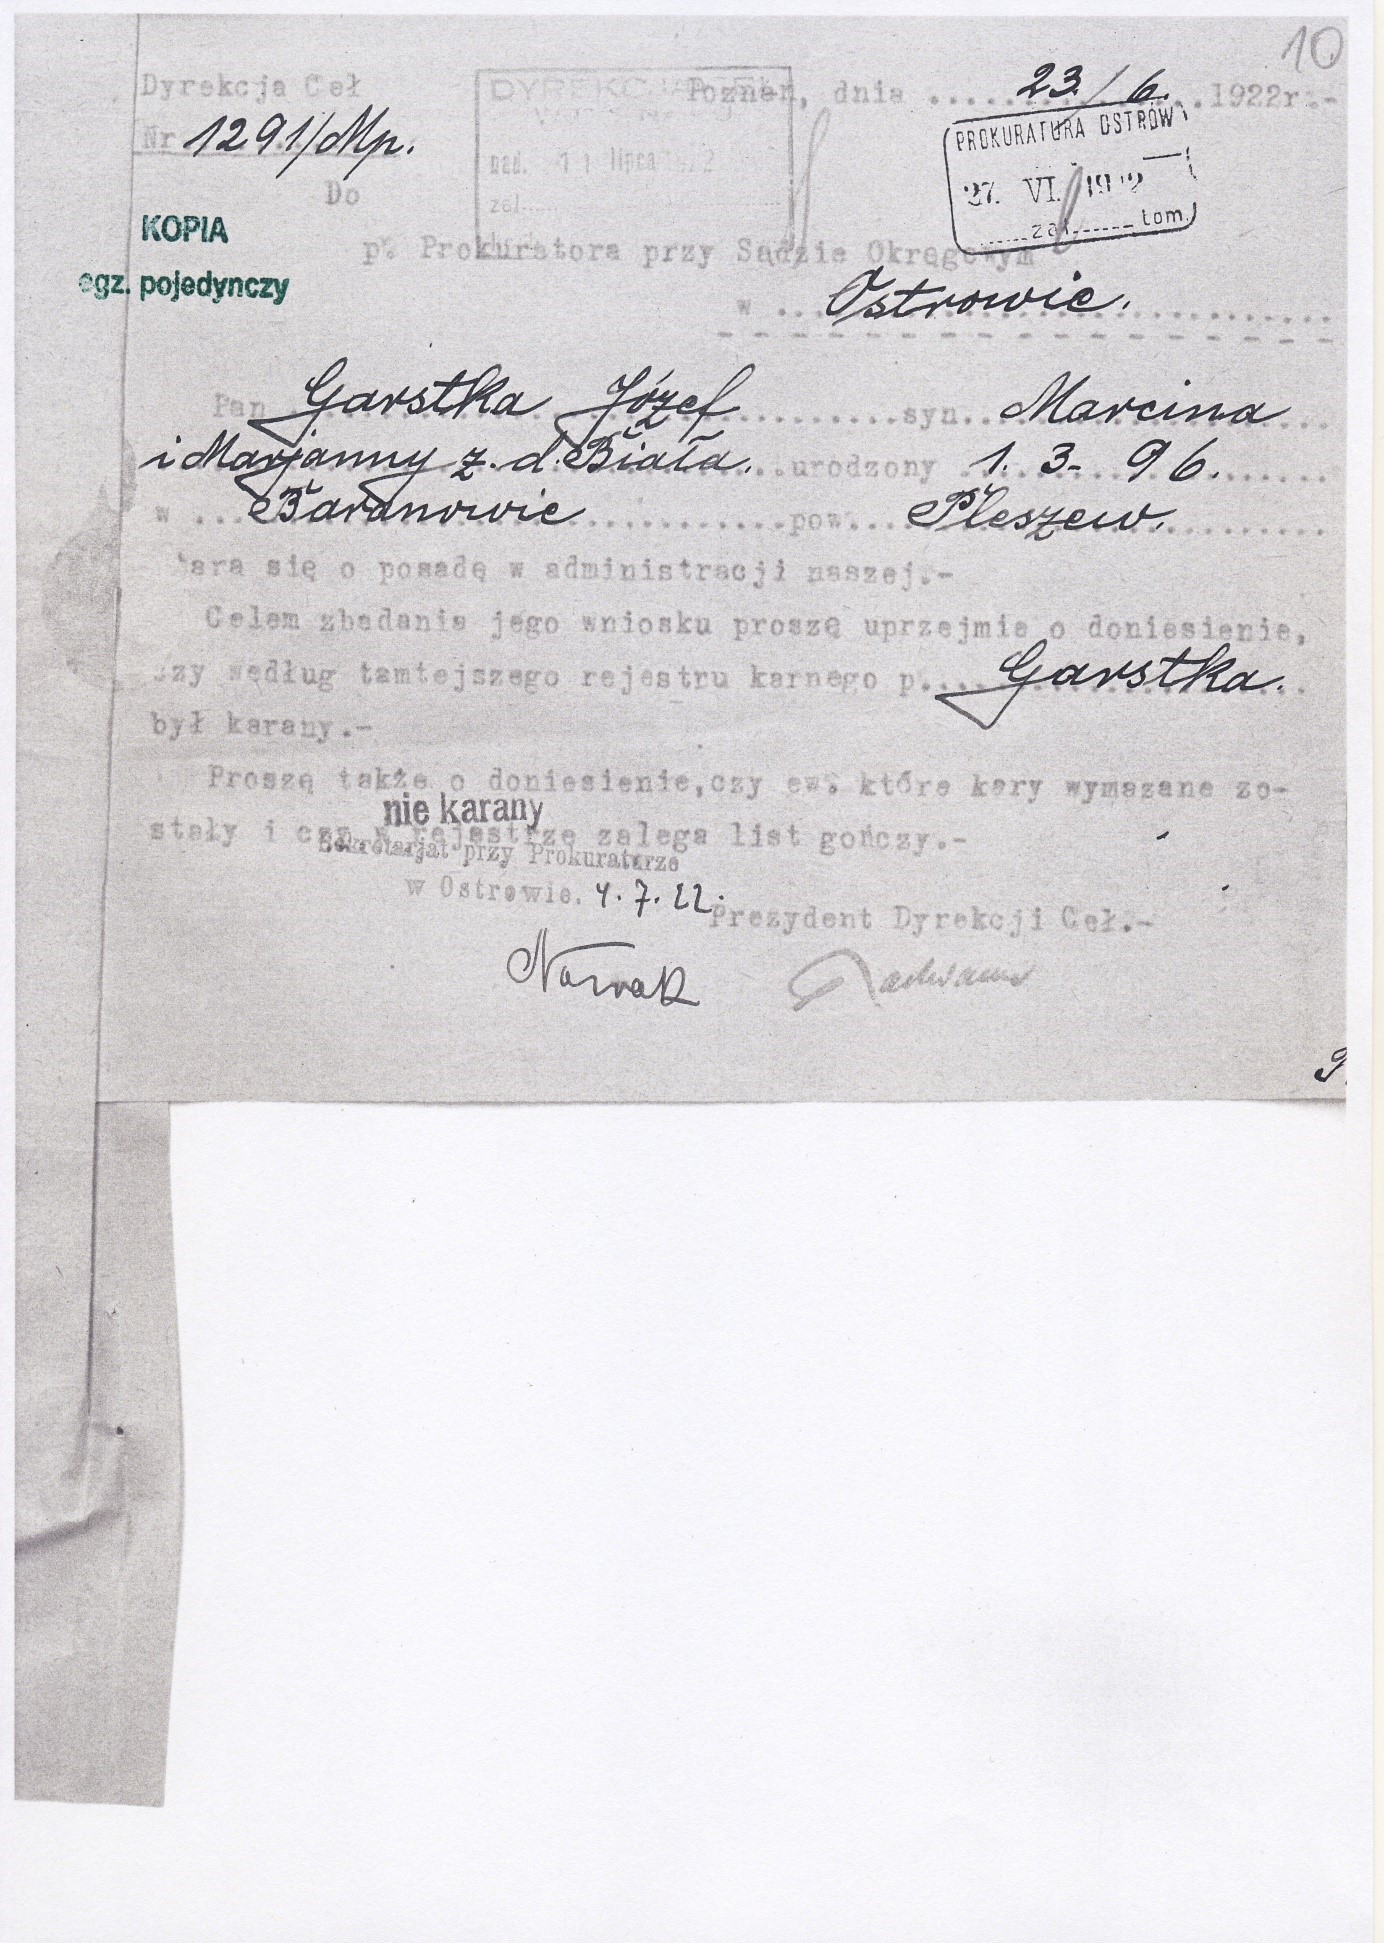 10
Dyrekcja Ceł
Poznań, dnia ....23./6....1922r.-
Nr 1291/Mp.
DYREKCJA CEŁ
nad. 11 lipca 1922
zał.
PROKURATURA OSTRÓW
27. VI. 1922
zał. tom.
Do
KOPIA
egz. pojedynczy
p. Prokuratora przy Sądzie Okręgowym
w ... Ostrowie.
Pan Garstka Józef syn Marcina
i Marjanny z. d. Biała. urodzony 1. 3. 96.
w ... Baranowie pow. Pleszew.
tara się o posadę w administracji naszej.-
Celem zbadania jego wniosku proszę uprzejmie o doniesienie,
czy według tamtejszego rejestru karnego p. Garstka.
był karany.-
Proszę także o doniesienie, czy ew. które kary wymazane zo-
stały i czy w rejestrze zalega list gończy.-
nie karany
Sekretarjat przy Prokuraturze
w Ostrowie. 4. 7. 22.
Prezydent Dyrekcji Ceł.-
Nowak